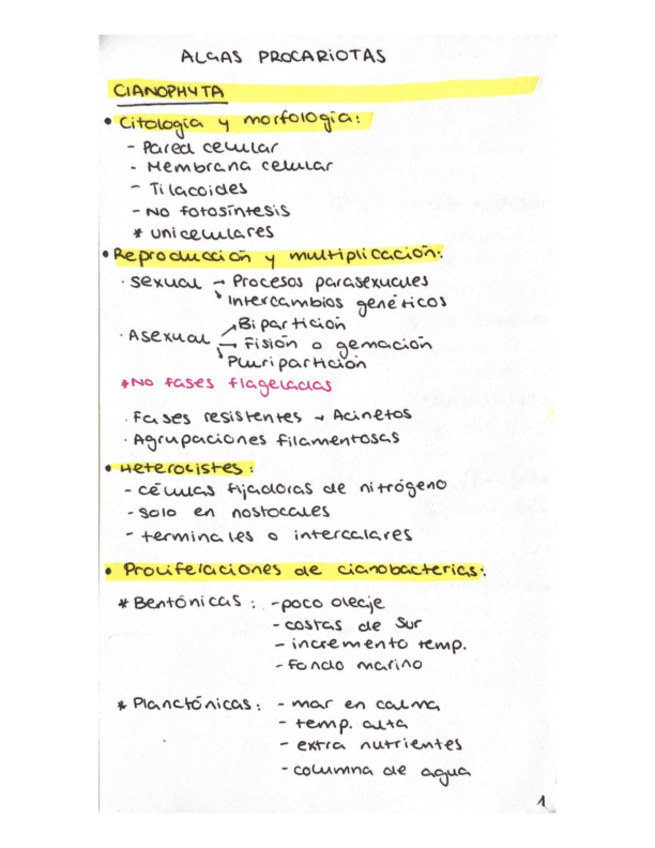 ALGAS PROCARIOTAS
CIANOPHYTA
• Citología y morfología:
- Pared celular
- Membrana celular
- Tilacoides
- No fotosíntesis
* unicelulares
• Reproducción y multiplicación:
· sexual → Procesos parasexuales
↘ Intercambios genéticos
↗ Bipartición
· Asexual → Fisión o gemación
↘ Pluripartición
* No fases flageladas
· Fases resistentes → Acinetos
· Agrupaciones filamentosas
• Heterocistes:
- células fijadoras de nitrógeno
- solo en nostocales
- terminales o intercalares
• Proliferaciones de cianobacterias:
* Bentónicas: - poco oleaje
- costas de sur
- incremento temp.
- fondo marino
* Planctónicas: - mar en calma
- temp. alta
- extra nutrientes
- columna de agua
1